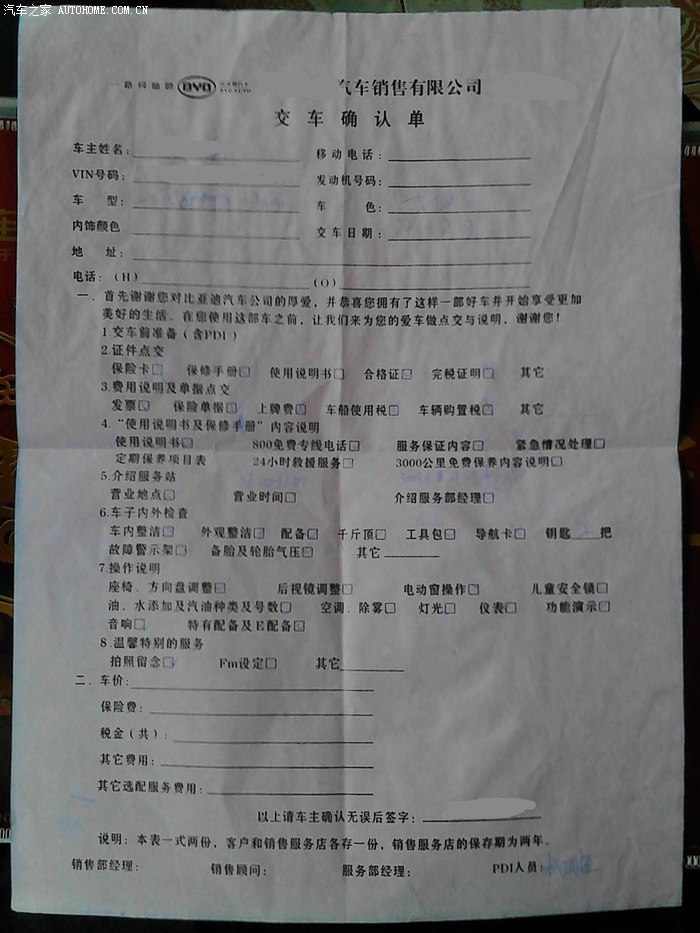 汽车之家 AUTOHOME.COM.CN
BYD 汽车销售有限公司
交车确认单
车主姓名: 移动电话:
VIN号码: 发动机号码:
车 型: 车 色:
内饰颜色 交车日期:
地 址:
电话:(H) (O)
一．首先谢谢您对比亚迪汽车公司的厚爱，并恭喜您拥有了这样一部好车并开始享受更加
美好的生活。在您使用这部车之前，让我们来为您的爱车做点交与说明，谢谢您!
1.交车前准备(含PDI)
2.证件点交
保险卡□ 保修手册□ 使用说明书□ 合格证□ 完税证明□ 其它
3.费用说明及单据点交
发票□ 保险单据□ 上牌费□ 车船使用税□ 车辆购置税□ 其它
4.“使用说明书及保修手册”内容说明
使用说明书□ 800免费专线电话□ 服务保证内容□ 紧急情况处理□
定期保养项目表 24小时救援服务□ 3000公里免费保养内容说明□
5.介绍服务站
营业地点□ 营业时间□ 介绍服务部经理□
6.车子内外检查
车内整洁□ 外观整洁□ 配备□ 千斤顶□ 工具包□ 导航卡□ 钥匙 2 把
故障警示架□ 备胎及轮胎气压□ 其它
7.操作说明
座椅、方向盘调整□ 后视镜调整□ 电动窗操作□ 儿童安全锁□
油、水添加及汽油种类及号数□ 空调、除雾□ 灯光□ 仪表□ 功能演示□
音响□ 特有配备及E配备□
8.温馨特别的服务
拍照留念□ Fm设定□ 其它
二．车价:
保险费:
税金(共):
其它费用:
其它选配服务费用:
以上请车主确认无误后签字:
说明:本表一式两份，客户和销售服务店各存一份，销售服务店的保存期为两年。
销售部经理: 销售顾问: 服务部经理: PDI人员: